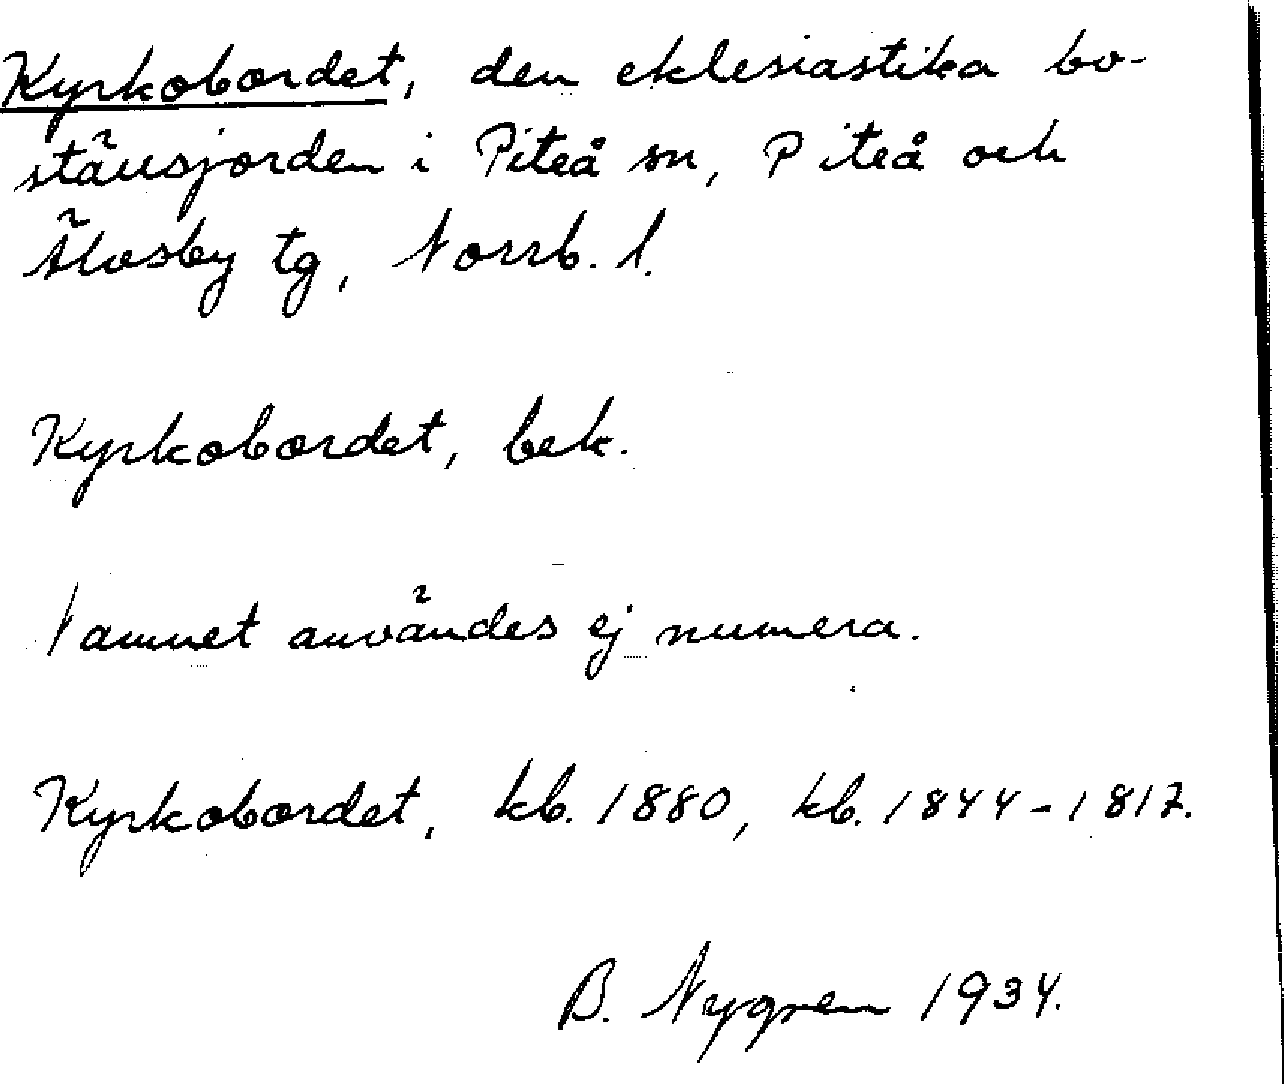 Kyrkobordet, den eklesiastika bo-
ställsjorden i Piteå sn, Piteå och
Älvsby tg, Norrb. l.
Kyrkobordet, bek.
Namnet användes ej numera.
Kyrkobordet, kb. 1880, kb. 1844-1812.
B. Nygren 1934.